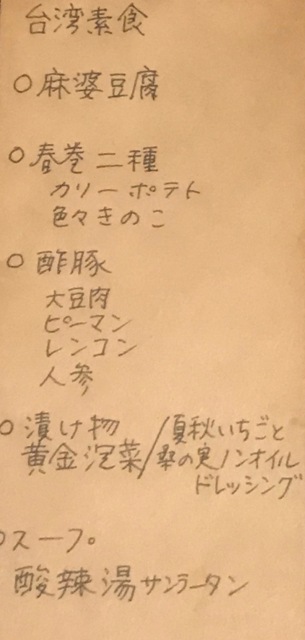 台湾素食
○麻婆豆腐
○春巻二種
カリーポテト
色々きのこ
○酢豚
大豆肉
ピーマン
レンコン
人参
○漬け物
黄金泡菜/夏秋いちごと
桑の実ノンオイル
ドレッシング
○スープ。
酸辣湯サンラータン